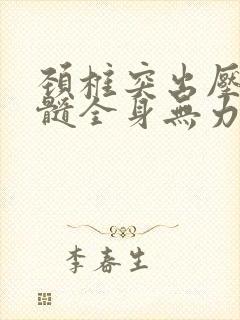 頚柱突出壓
髓全身無力
李春生